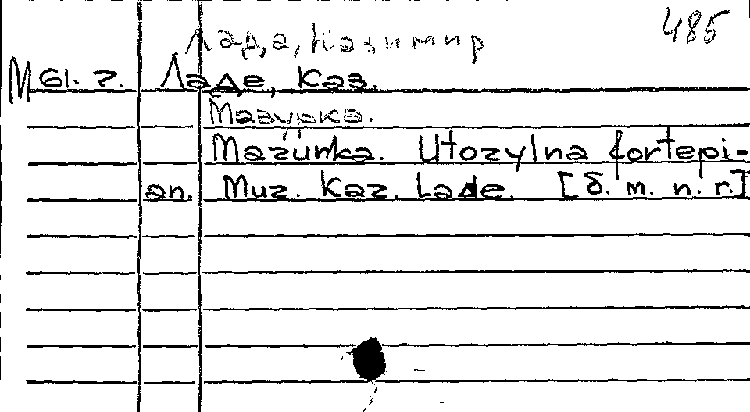 485
Лада, Казимир
M 61. 7. Ладе, Каз.
Мазурка.
Mazurka. Utozylna fortepi-
an. Muz. Kaz. Lade. [б. м. п. г.]